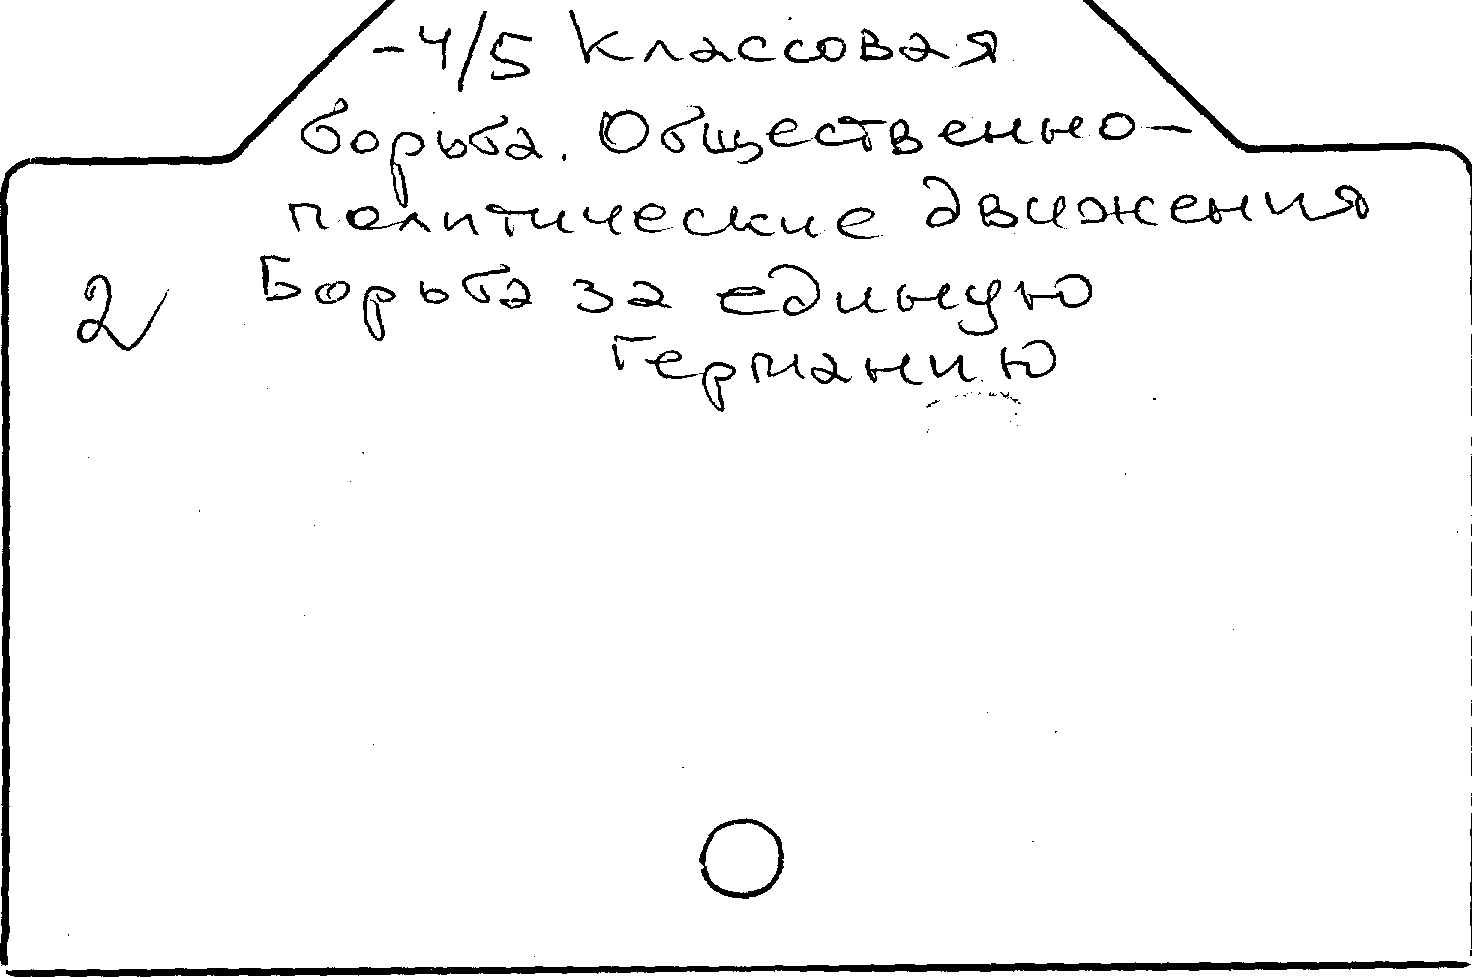 -4/5 Классовая
борьба. Общественно-
политические движения
2 Борьба за единую
Германию